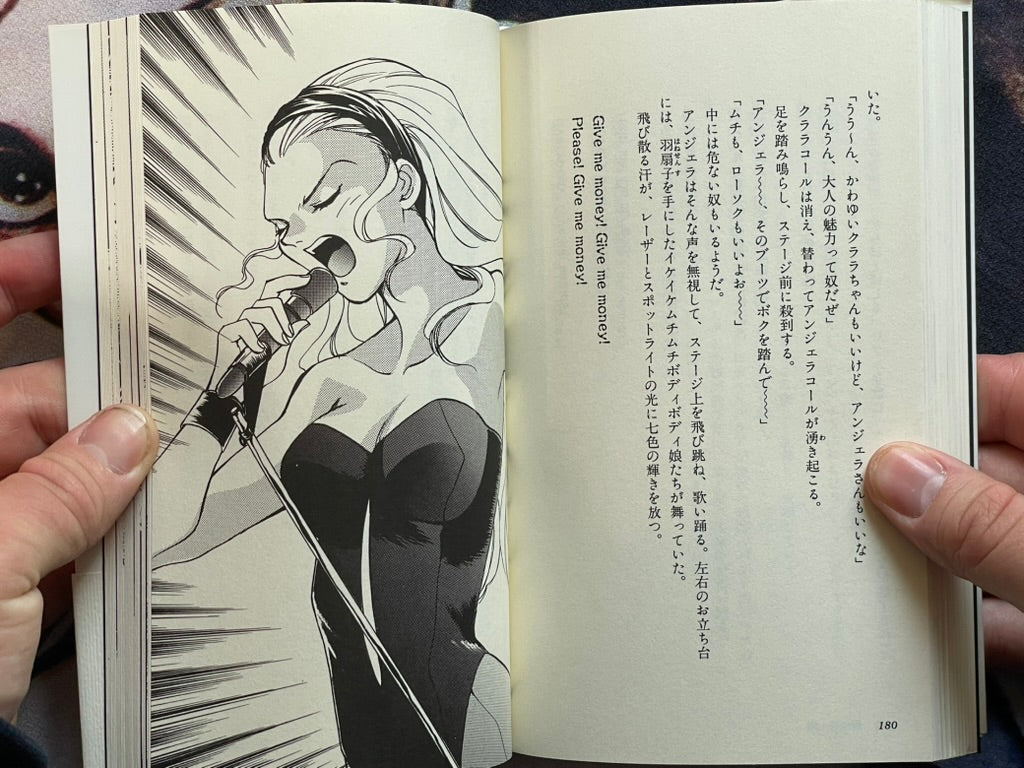 いた。
「うう〜ん、かわゆいクララちゃんもいいけど、アンジェラさんもいいな」
「うんうん、大人の魅力って奴だぜ」
クララコールは消え、替わってアンジェラコールが湧き起こる。
足を踏み鳴らし、ステージ前に殺到する。
「アンジェラ〜〜〜、そのブーツでボクを踏んで〜〜〜」
「ムチも、ローソクもいいよお〜〜〜」
中には危ない奴もいるようだ。
アンジェラはそんな声を無視して、ステージ上を飛び跳ね、歌い踊る。左右のお立ち台
には、羽扇子を手にしたイケイケムチムチボディボディ娘たちが舞っていた。
飛び散る汗が、レーザーとスポットライトの光に七色の輝きを放つ。
Give me money! Give me money!
Please! Give me money!
180